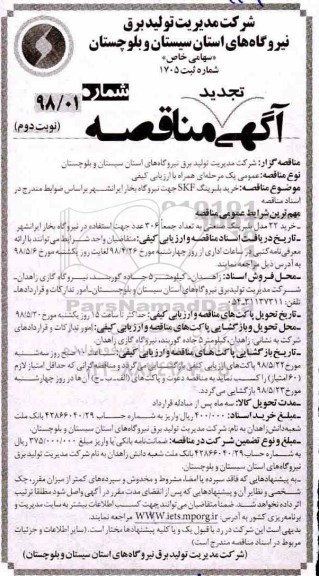 شرکت مدیریت تولید برق
نیروگاه‌های استان سیستان و بلوچستان
«سهامی خاص»
شماره ثبت ۱۷۰۵
آگهی تجدید مناقصه
شماره ۹۸/۰۱
(نوبت دوم)
مناقصه گزار: شرکت مدیریت تولید برق نیروگاه‌های استان سیستان و بلوچستان
نوع مناقصه: عمومی یک مرحله‌ای همراه با ارزیابی کیفی
موضوع مناقصه: خرید بلبرینگ SKF جهت نیروگاه بخار ایرانشهر براساس ضوابط مندرج در
اسناد مناقصه
مهم‌ترین شرایط عمومی مناقصه
ـ خرید ۲۲ مدل بلبرینگ صنعتی به تعداد جمعاً ۳۰۶ عدد جهت استفاده در نیروگاه بخار ایرانشهر
ـ تاریخ دریافت اسناد مناقصه و ارزیابی کیفی: متقاضیان واجد شرایط می‌توانند با ارائه
معرفی‌نامه کتبی از ساعات اداری از روز چهارشنبه مورخ ۹۸/۴/۲۶ لغایت روز یکشنبه مورخ ۹۸/۵/۶
به آدرس ذیل مراجعه نمایند.
ـ محل فروش اسناد: زاهدان، کیلومتر ۵ جاده گوربند، نیروگاه گازی زاهدان،
شرکت مدیریت تولید برق نیروگاه‌های استان سیستان و بلوچستان ـ امور تدارکات و قراردادها ـ
تلفن:
ـ تاریخ تحویل پاکت‌های مناقصه و ارزیابی کیفی: حداکثر تا ساعت ۱۵ روز یکشنبه مورخ ۹۸/۵/۲۰
ـ محل تحویل و بازگشایی پاکت‌های مناقصه و ارزیابی کیفی: امور تدارکات و قراردادهای
شرکت به نشانی: زاهدان، کیلومتر ۵ جاده گوربند، نیروگاه گازی زاهدان.
ـ تاریخ بازگشایی پاکت‌های مناقصه و ارزیابی کیفی: ساعت ۱۰ صبح روز سه‌شنبه
مورخ ۹۸/۵/۲۲ پاکت‌های ارزیابی کیفی بازگشایی می‌گردد و مناقصه‌گرانی که حداقل امتیاز لازم
(۶۰ امتیاز) را کسب نماید به مناقصه دعوت و پاکت‌های (الف ـ ب ـ ج) آن‌ها در روز چهارشنبه
مورخ ۹۸/۵/۲۳ بازگشایی می‌گردد.
ـ مدت تحویل کالا: سه ماه پس از مبادله قرارداد
ـ مبلغ خرید اسناد: ۴۰۰/۰۰۰ ریال واریز به شماره حساب ۴۲۸۶۶۰۴۰/۲۹ بانک ملت
شعبه دانش زاهدان به نام: شرکت مدیریت تولید برق نیروگاه‌های استان سیستان و بلوچستان.
ـ مبلغ و نوع تضمین شرکت در مناقصه: ضمانت‌نامه بانکی یا واریز مبلغ ۳۷۵/۰۰۰/۰۰۰ ریال
به شماره حساب ۴۲۸۶۶۰۴۰/۲۹ بانک ملت شعبه دانش زاهدان به نام شرکت مدیریت تولید برق
نیروگاه‌های استان سیستان و بلوچستان.
ـ به پیشنهادهایی که فاقد سپرده یا امضا، مشروط و مخدوش و سپرده‌های کمتر از میزان مقرر، چک
شخصی و نظایر آن و پیشنهادهایی که پس از انقضای مدت مقرر در آگهی واصل شود مطلقاً ترتیب
اثر داده نخواهد شد. ضمناً متقاضیان می‌توانند جهت کسب اطلاعات بیشتر به سایت مدیریت و
برنامه‌ریزی کشور به آدرس: WWW.iets.mporg.ir مراجعه نمایند.
بدیهی است این شرکت در رد یا قبول یک و یا کلیه پیشنهادها مختار است. (سایر اطلاعات و جزئیات
مربوط در اسناد مناقصه مندرج است)
(شرکت مدیریت تولید برق نیروگاه‌های استان سیستان و بلوچستان)